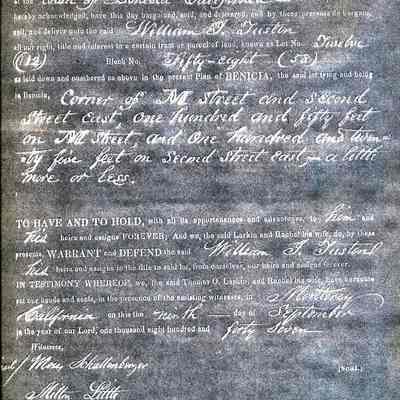 Town of Benicia California
hereby acknowledged, have this day bargained, sold, and delivered, and by these presents do bargain,
sell, and deliver unto the said William I. Tustin
all our right, title and interest to a certain tract or parcel of land, known as Lot No. Twelve
(12) Block No. Fifty-eight (58)
as laid down and numbered as above in the present Plan of BENICIA, the said lot lying and being
in Benicia, Corner of M Street and Second
Street east, One hundred and fifty feet
on M Street, and One hundred and twen-
-ty five feet on Second Street east, — a little
more or less.
TO HAVE AND TO HOLD, with all its appurtenances and advantages, to him and
his heirs and assigns FOREVER; And we, the said Larkin and Rachel his wife, do, by these
presents, WARRANT and DEFEND the said William I. Tustin &
his heirs and assigns in the title to said lot, from ourselves, our heirs and assigns forever.
IN TESTIMONY WHEREOF, we, the said Thomas O. Larkin, and Rachel his wife, have hereunto
set our hands and seals, in the presence of the subscribing witnesses, in Monterey
California on this the ninth day of September
in the year of our Lord, one thousand eight hundred and forty Seven
Witness,
Moses Schallenberger [Seal.]
Milton Little